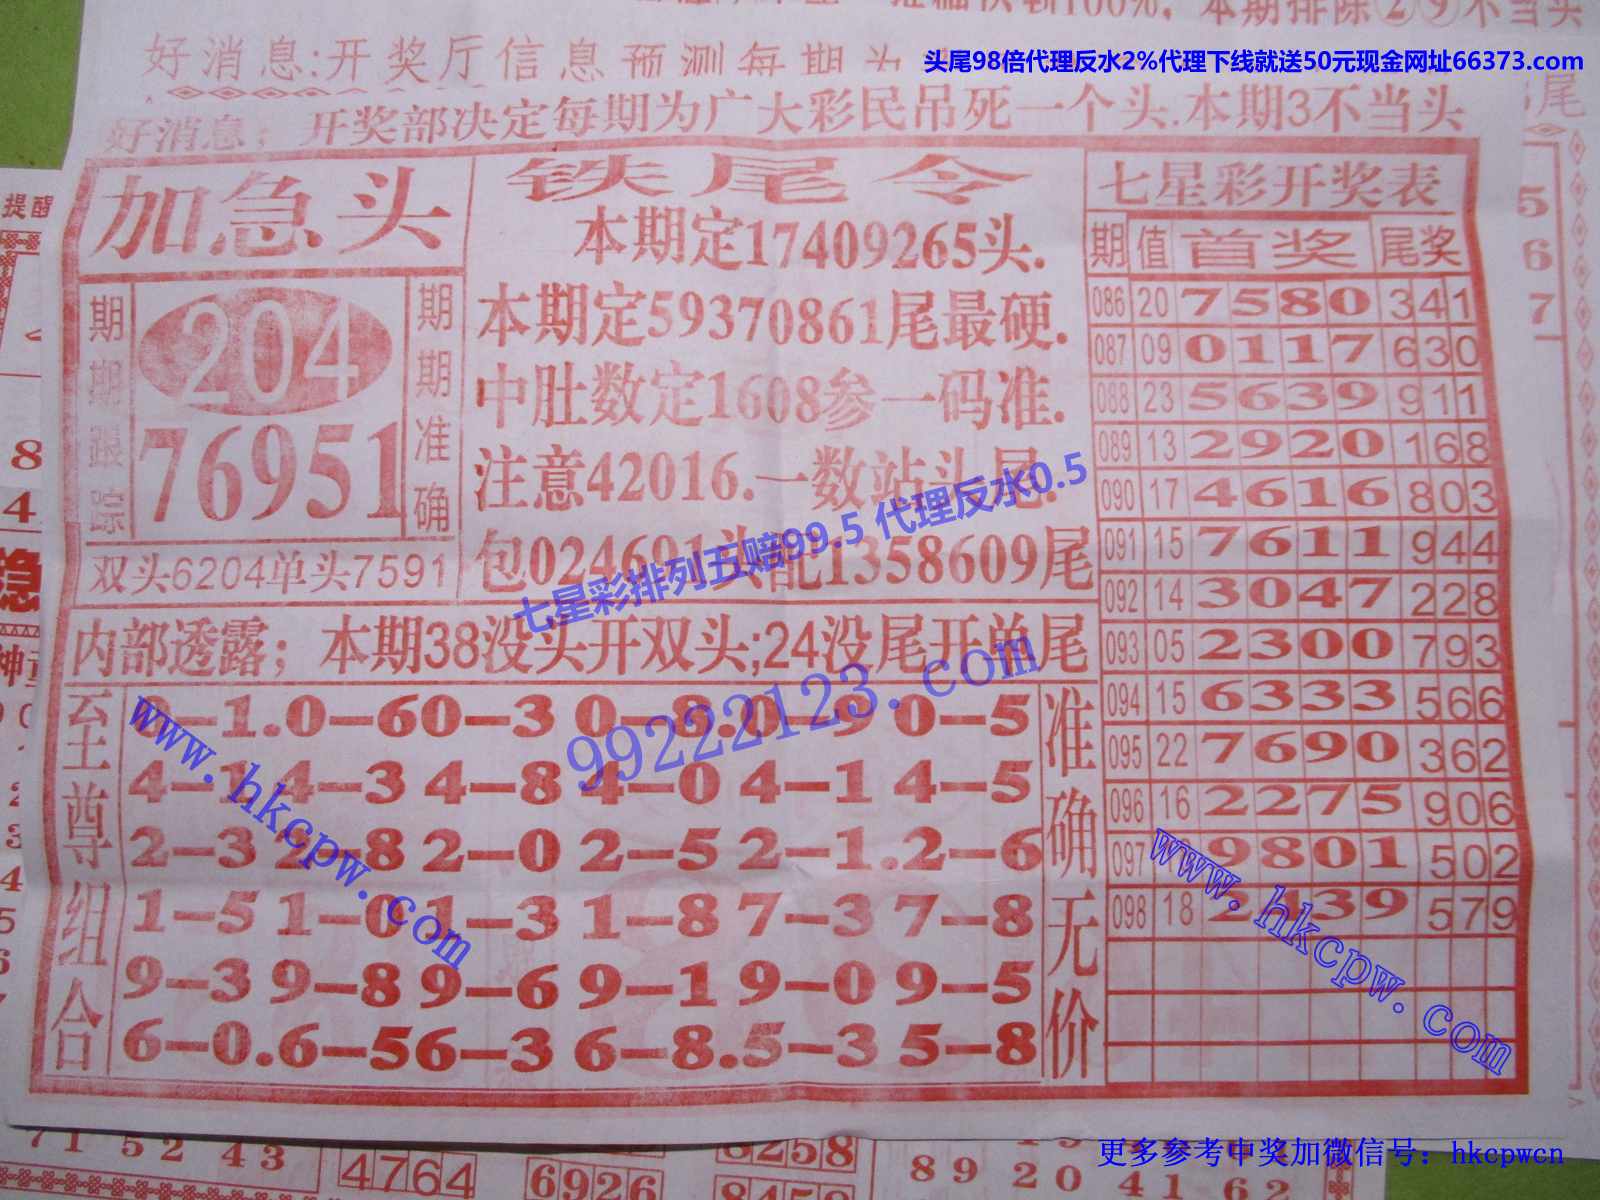 本期排除②⑨不当头
好消息:开奖厅信息预测每期为
头尾98倍代理反水2%代理下线就送50元现金网址66373.com
好消息；开奖部决定每期为广大彩民吊死一个头.本期3不当头
加急头
期期跟踪
204
76951
期期准确
双头6204单头7591
铁尾令
本期定17409265头.
本期定59370861尾最硬.
中肚数定1608参一码准.
注意42016.一数站头尾.
包024691头配1358609尾
七星彩排列五赔99.5 代理反水0.5
内部透露；本期38没头开双头;24没尾开单尾
99222123.com
至尊组合
0-1.0-60-3 0-8.0-9 0-5
4-1 4-3 4-8 4-0 4-1 4-5
2-3 2-8 2-0 2-5 2-1.2-6
1-5 1-0 1-3 1-8 7-3 7-8
9-3 9-8 9-6 9-1 9-0 9-5
6-0.6-56-3 6-8.5-3 5-8
准确无价
www.hkcpw.com
七星彩开奖表
期 值 首奖 尾奖
086 20 7580 341
087 09 0117 630
088 23 5639 911
089 13 2920 168
090 17 4616 803
091 15 7611 944
092 14 3047 228
093 05 2300 793
094 15 6333 566
095 22 7690 362
096 16 2275 906
097 9801 502
098 18 2439 579
www.hkcpw.com
提醒
8
4
稳
尾
5
6
7
71 52 43
4764
6926
8258
8458
89 20 41 62
更多参考中奖加微信号：hkcpwcn